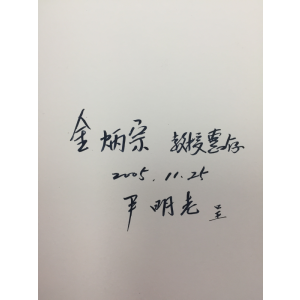 金炳宗 教授惠存
2005.11.25
尹明老 呈